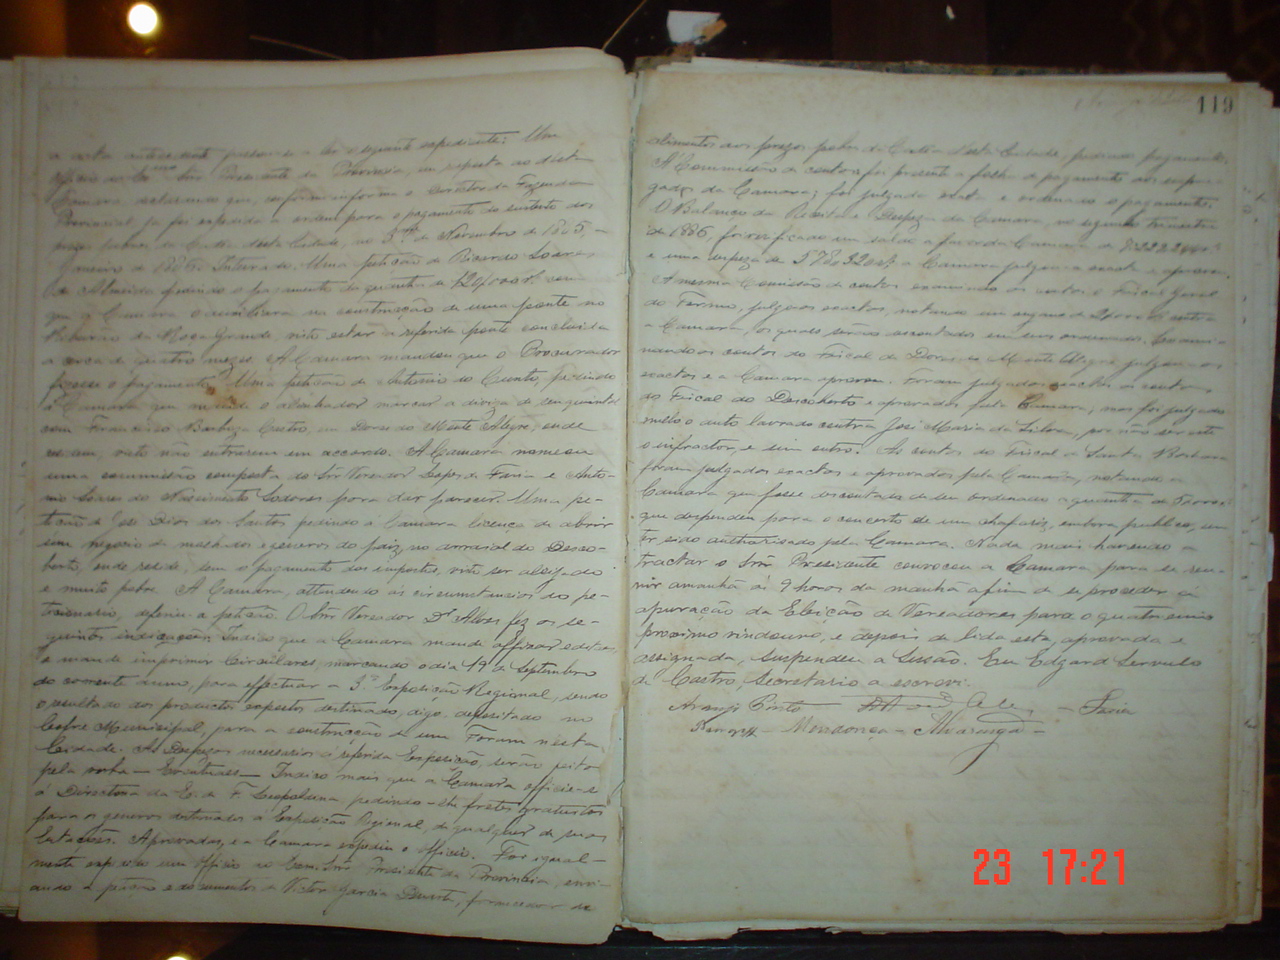 a acta antecedente passou-se a ler o seguinte expediente: Um
officio do Ex.mo Snr. Presidente da Provincia, em resposta ao desta
Camara declarando que, conforme informa o Director da Fazenda
Provincial já foi expedida a ordem para o pagamento do sustento dos
prezos pobres da Cadêa desta Cidade, de Novembro de 1885, a
Janeiro de 1886. Inteirada. Uma petição de Ricardo Soares
de Almeida pedindo o pagamento da quantia de 120$000 rs. com
que a Camara o auxiliára na construcção de uma ponte no
Ribeirão da Roça Grande, visto estar a referida ponte concluida
a cerca de quatro mezes. A Camara mandou que o Procurador
fizesse o pagamento. Uma petição de Antonio do Couto, pedindo
á Camara que mande o alinhador marcar a diviza de seu quintal
com Francisco Barboza Castro, em Dores do Monte Alegre, onde
rezidem, visto não entrarem em accordo. A Camara nomeou
uma commissão composta do Snr. Vereador Lopes de Faria e Anto-
nio Soares do Nascimento Sodores para dar parecer. Uma pe-
tição de José Dias dos Santos pedindo á Camara licença de abrir
um negocio de molhados e generos do paiz, no arraial do Desco-
berto, onde rezide, sem o pagamento dos impostos, visto ser aleijado
e muito pobre. A Camara, attendendo as circumstancias do pe-
ticionario, deferiu a petição. O Snr. Vereador Dr. Alves fez as se-
guintes indicações: Indico que a Camara mande affixar editaes,
e mande imprimir Circulares, marcando o dia 19 de Septembro
do corrente anno, para effectuar a 3.a Exposição Regional, sendo
o resultado dos productos expostos destinado, digo, depositado no
Cofre Municipal, para a construcção de um Forum nesta
Cidade. As Despezas necessarias á referida Exposição, serão feitas
pela verba — Eventuaes — Indico mais que a Camara officie-se
á Directoria da E. de F. Leopoldina pedindo-lhe fretes gratuitos
para os generos destinados á Exposição Regional, de qualquer de suas
Estações. Aprovadas, e a Camara expediu o officio. Foi igual-
mente expedido um officio ao Exm. Snr. Presidente da Provincia, envi-
ando a petição e documentos de Victor Garcia Duarte, fornecedor de
119
alimentos aos prezos pobres da Cadêa desta Cidade, pedindo pagamento.
A' Commissão de contas foi presente a folha de pagamento aos empre-
gados da Camara; foi julgada exata e ordenado o pagamento.
O Balanço da Receita e Despeza da Camara, no segundo trimestre
de 1886, foi verificado um saldo a favor da Camara de
e uma despeza de a Camara julgou-a exacta e aprovou.
A mesma Comissão de contas examinando as contas do Fiscal Geral
do Termo, julgou-as exactas, notando um engano de contra
a Camara, os quaes serão descontados em seus ordenados. Exami-
nando as contas do Fiscal de Dores do Monte Alegre julgou-as
exactas e a Camara aprovou. Foram julgadas exactas as contas
do Fiscal do Descoberto e aprovadas pela Camara; mas foi julgado
nullo o auto lavrado contra José Maria da Silva, por não ser este
o infractor, e sim outro. As contas do Fiscal de Santa Barbara
foram julgadas exactas e aprovadas pela Camara, notando a
Camara que fosse descontado de seu ordenado a quantia de
que despendeu para o concerto de um chafariz, embora publico, sem
ter sido authorisado pela Camara. Nada mais havendo a
tractar o Snr. Presidente convocou a Camara para se reu-
nir amanhã ás 9 horas da manhã afim de se proceder á
apuração da Eleição de Vereadores para o quatriennio
proximo vindouro, e depois de lida esta, aprovada e
assignada, suspendeu a Sessão. Eu Edgard Servulo
de Castro, Secretario a escrevi.
Araujo Porto — Faria
Mendonça — Alvarenga —
23 17:21